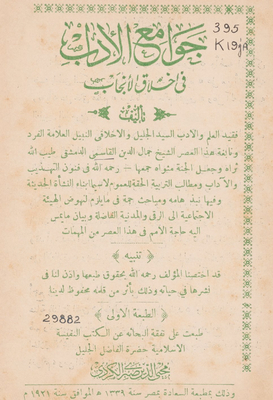 جوامع الآداب
395
K19jA
في اخلاق الانجاب
تأليف
فقيد العلم والادب السيد الجليل والاخلاقي النبيل العلامة الفرد
ونابغة هذا العصر الشيخ جمال الدين القاسمي الدمشقي طيب الله
ثراه وجعل الجنة مثواه جمعها — رحمه الله في فنون التهذيب
والآداب ومطالب التربية الحقة للعموم لاسيما ابناء النشأة الحديثة
وفيها نبذ هامة ومباحث جمة في ما يلزم لنهوض الهيئة
الاجتماعية الى الرقي والمدنية الفاضلة وبيان ما يمس
اليه حاجة الامم في هذا العصر من المهمات
تنبيه
قد اختصنا المؤلف رحمه الله بحقوق طبعها واذن لنا في
نشرها في حياته وذلك بأثر من قلمه محفوظ لدينا
الطبعة الاولى
29882
طبعت على نفقة البحاثة عن الكتب النفيسة
الاسلامية حضرة الفاضل الجليل
محي الدين صبري الكردي
وذلك بمطبعة السعادة بمصر سنة ١٣٣٩ ه الموافق سنة ١٩٢١ م